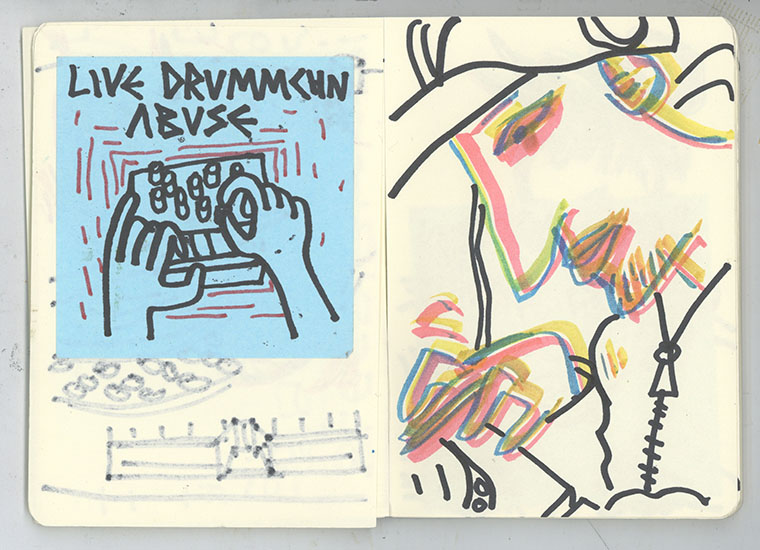 LIVE DRUMMCHN
ABUSE